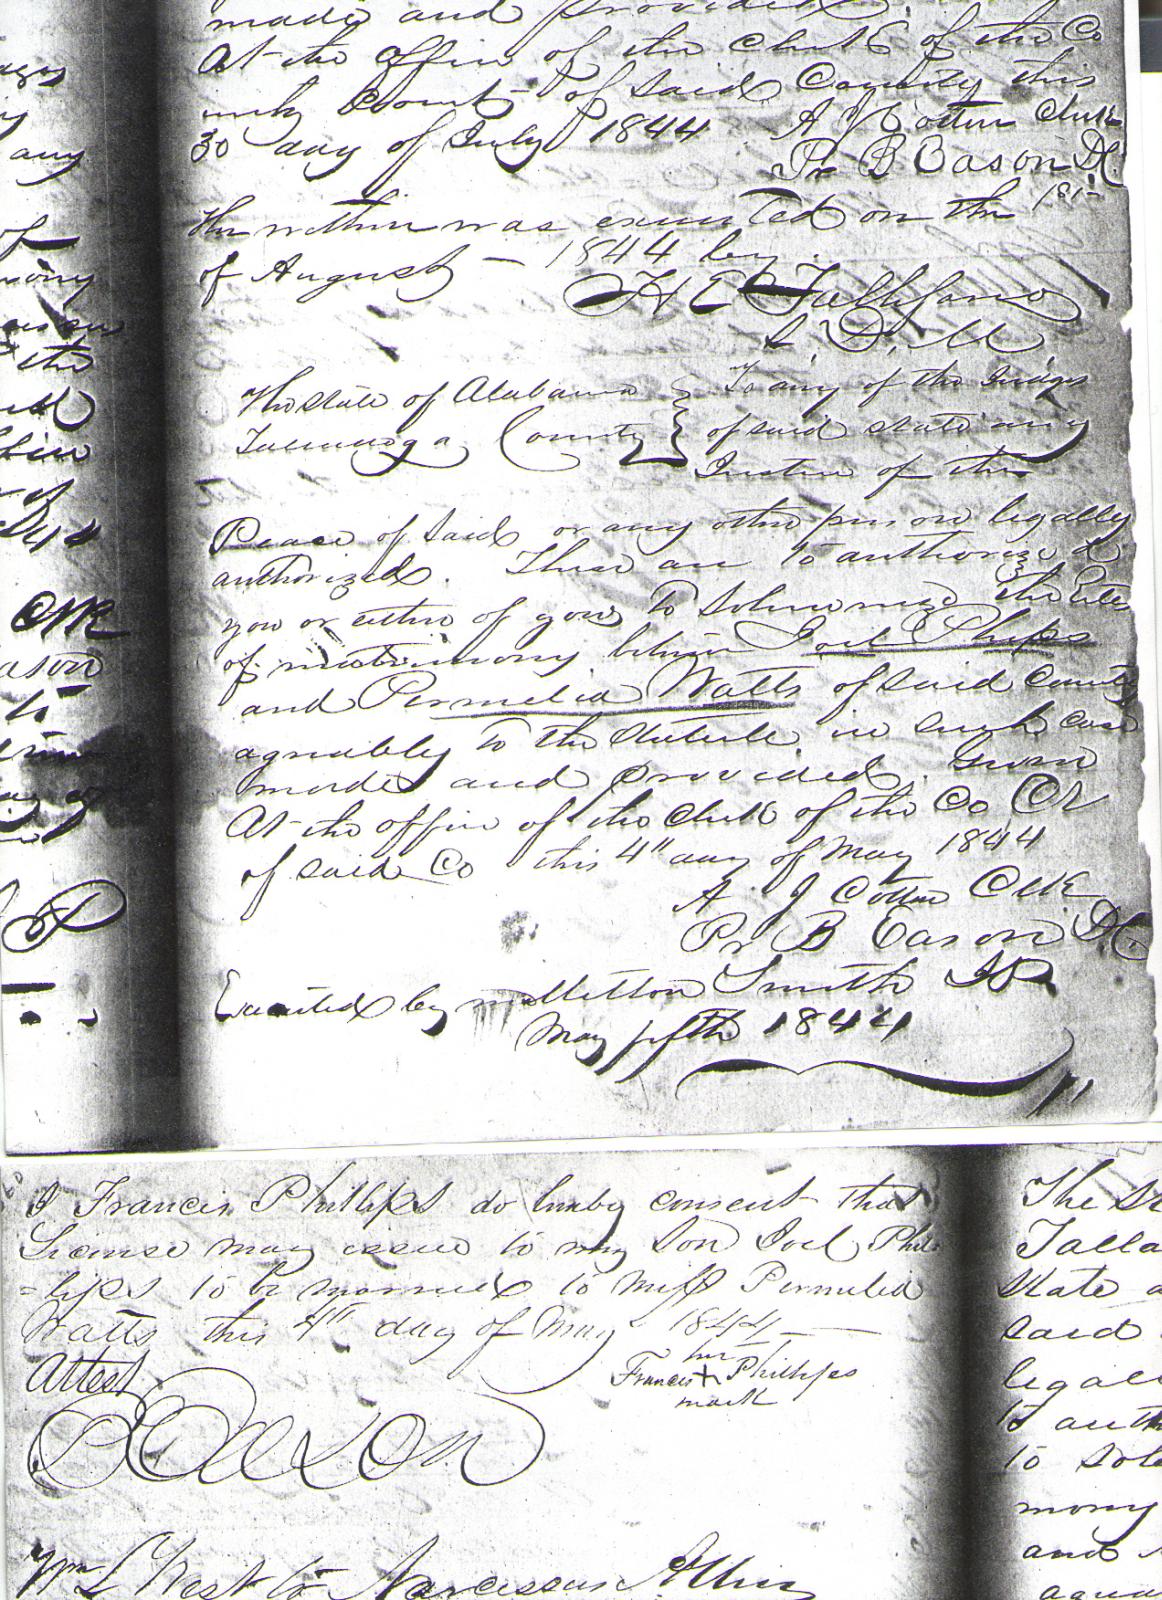 made and provided.
At the office of the Clerk of the Co
unty Court of said County this
30 day of July 1844 A J Cotten Clerk
Pr B Eason DC
The within was executed on the 1st
of August 1844 by
L D. M
The state of Alabama } To any of the Judges
County } of said state any
Justice of the
Peace of said or any other person legally
authorized. These are to authorize
you or either of you to solemnize the rites
of matrimony between Joel Phips
and Permelia Watts of said County
agreeably to the Statute in such case
made and provided. Given
At the office of the Clerk of the Co Ct
of said Co this 4" day of May 1844
A. J Cotten Clk
Pr B Eason DC.
Executed by Smith JP
May fifth 1844
I Francis Phillips do hereby consent that
License may issue to my Son Joel Phil-
=lips to be married to Miss Permelia
Watts this 4th day of May 1844
Attest
his
Francis + Phillips
mark
B Eason
Wm L West to Narcissus
The St
Talla
State a
said
legal
to auth
to sole
mony
and
agree
any
of
mony
the
Clk
ason
to